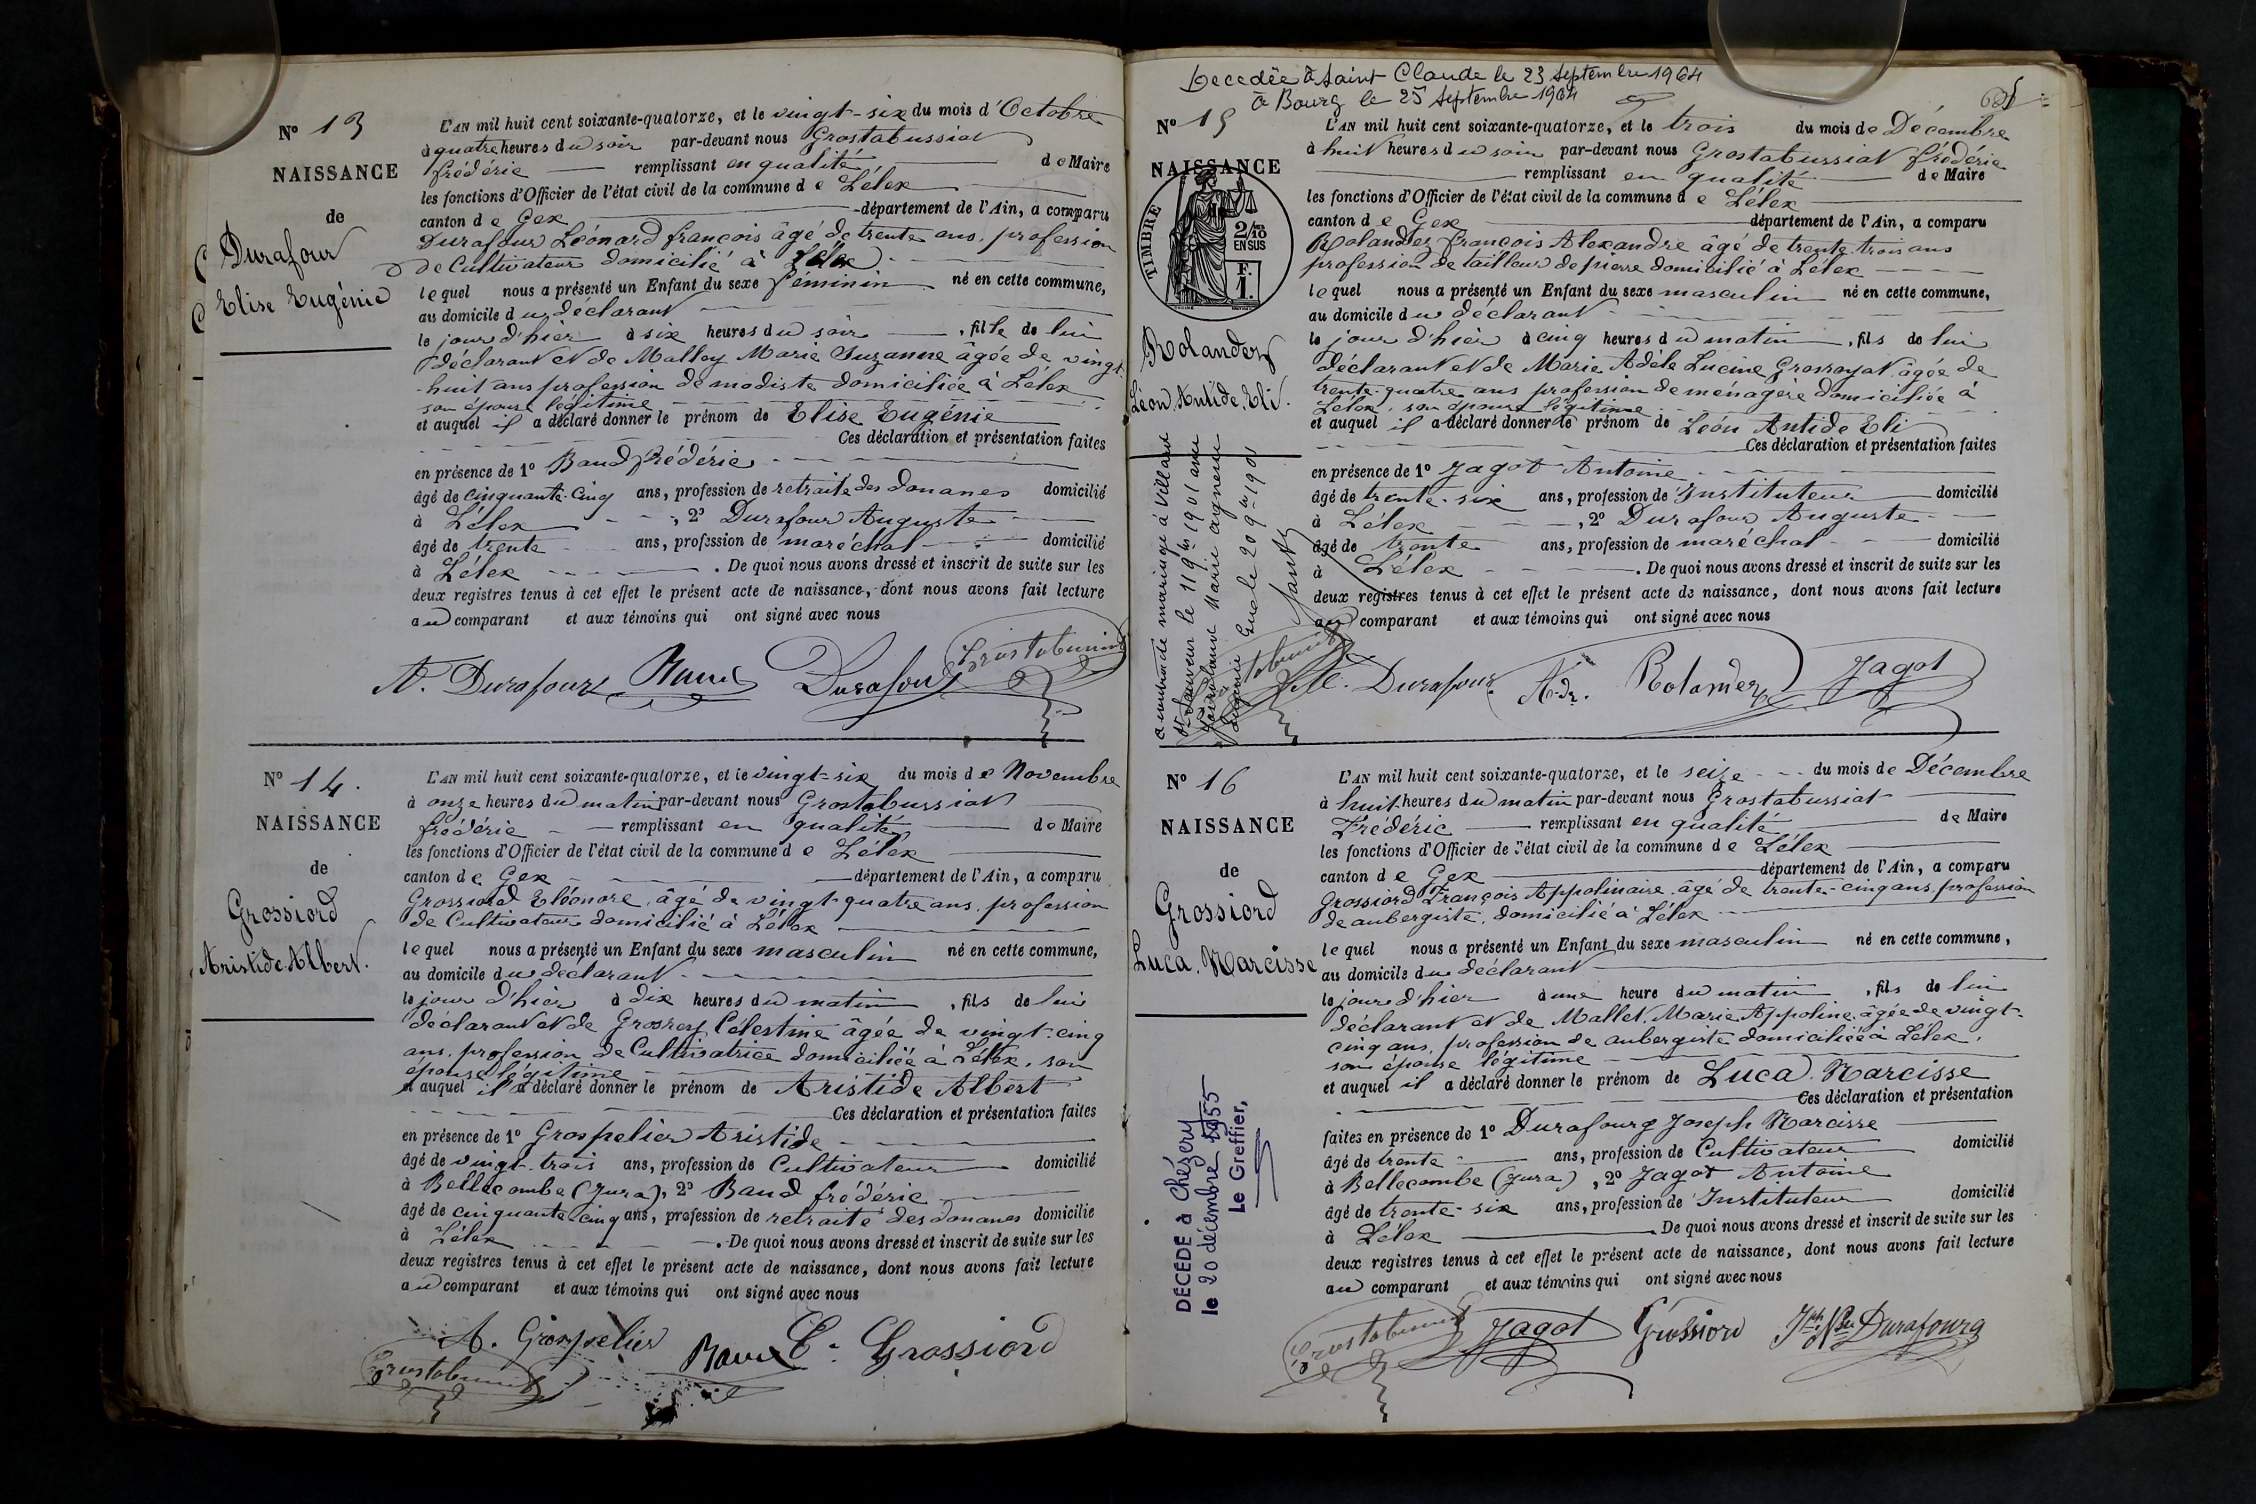 N° 13
NAISSANCE
de
Durafour
Elise Eugénie
L'AN mil huit cent soixante-quatorze, et le vingt-six du mois d'Octobre
à quatre heures du soir par-devant nous Grostabussiat
frédéric remplissant en qualité de Maire
les fonctions d'Officier de l'état civil de la commune de Lélex
canton de Gex département de l'Ain, a comparu
Durafour Léonard françois âgé de trente ans, profession
de Cultivateur domicilié à Lélex
lequel nous a présenté un Enfant du sexe féminin né en cette commune,
au domicile du déclarant
le jour d'hier à six heures du soir, fille de lui
déclarant et de Malley Marie Suzanne âgée de vingt
-huit ans profession de modiste domiciliée à Lélex
son épouse légitime
et auquel il a déclaré donner le prénom de Elise Eugénie
Ces déclaration et présentation faites
en présence de 1° Baud frédéric
âgé de cinquante-cinq ans, profession de retraite des douanes domicilié
à Lélex, 2° Durafour Auguste
âgé de trente ans, profession de maréchal domicilié
à Lélex. De quoi nous avons dressé et inscrit de suite sur les
deux registres tenus à cet effet le présent acte de naissance, dont nous avons fait lecture
au comparant et aux témoins qui ont signé avec nous
A. Durafour Baud Durafour Grostabussiat
N° 14.
NAISSANCE
de
Grossiord
Aristide Albert.
L'AN mil huit cent soixante-quatorze, et le vingt-six du mois de Novembre
à onze heures du matin par-devant nous Grostabussiat
frédéric remplissant en qualité de Maire
les fonctions d'Officier de l'état civil de la commune de Lélex
canton de Gex département de l'Ain, a comparu
Grossiord Eléonore, âgé de vingt-quatre ans, profession
de Cultivateur domicilié à Lélex
lequel nous a présenté un Enfant du sexe masculin né en cette commune,
au domicile du déclarant
le jour d'hier à dix heures du matin, fils de lui
déclarant et de Célestine âgée de vingt-cinq
ans, profession de Cultivatrice domiciliée à Lélex, son
épouse légitime
et auquel il a déclaré donner le prénom de Aristide Albert
Ces déclaration et présentation faites
en présence de 1° Grospelier Aristide
âgé de vingt-trois ans, profession de Cultivateur domicilié
à Bellecombe (Jura), 2° Baud frédéric
âgé de cinquante-cinq ans, profession de retraité des douanes domicilié
à Lélex. De quoi nous avons dressé et inscrit de suite sur les
deux registres tenus à cet effet le présent acte de naissance, dont nous avons fait lecture
au comparant et aux témoins qui ont signé avec nous
A. Grospelier Baud E. Grossiord
Grostabussiat
Decedée à Saint Claude le 23 Septembre 1964
à Bourg le 25 Septembre 1964
N° 15
NAISSANCE
TIMBRE
2/10
EN SUS
F.
1.
Rolandez
Léon, Antide, Eli.
L'AN mil huit cent soixante-quatorze, et le trois du mois de Décembre
à huit heures du soir par-devant nous Grostabussiat frédéric
remplissant en qualité de Maire
les fonctions d'Officier de l'état civil de la commune de Lélex
canton de Gex département de l'Ain, a comparu
Rolandez françois Alexandre âgé de trente-trois ans
profession de tailleur de pierre domicilié à Lélex
lequel nous a présenté un Enfant du sexe masculin né en cette commune,
au domicile du déclarant
le jour d'hier à cinq heures du matin, fils de lui
déclarant et de Marie Adèle Lucine âgée de
trente-quatre ans profession de ménagère domiciliée à
Lélex, son épouse légitime
et auquel il a déclaré donner le prénom de Léon Antide Eli
Ces déclaration et présentation faites
en présence de 1° Jagot Antoine
âgé de trente-six ans, profession de Instituteur domicilié
à Lélex, 2° Durafour Auguste
âgé de trente ans, profession de maréchal domicilié
à Lélex. De quoi nous avons dressé et inscrit de suite sur les
deux registres tenus à cet effet le présent acte de naissance, dont nous avons fait lecture
au comparant et aux témoins qui ont signé avec nous
mariage à Villard
St Sauveur le 11 9bre 1901 avec
Marie
Eugénie le 20 9bre 1901
A. Durafour Rolandez Jagot
N° 16
NAISSANCE
de
Grossiord
Luca, Narcisse
L'AN mil huit cent soixante-quatorze, et le seize du mois de Décembre
à huit heures du matin par-devant nous Grostabussiat
Frédéric remplissant en qualité de Maire
les fonctions d'Officier de l'état civil de la commune de Lélex
canton de Gex département de l'Ain, a comparu
Grossiord François Appolinaire, âgé de trente-cinq ans, profession
de aubergiste, domicilié à Lélex
lequel nous a présenté un Enfant du sexe masculin né en cette commune,
au domicile du déclarant
le jour d'hier à une heure du matin, fils de lui
déclarant et de Mallet, Marie Appoline, âgée de vingt-
cinq ans, profession de aubergiste domiciliée à Lélex,
son épouse légitime
et auquel il a déclaré donner le prénom de Luca, Narcisse
Ces déclaration et présentation
faites en présence de 1° Durafourg Joseph Narcisse
âgé de trente ans, profession de Cultivateur domicilié
à Bellecombe (Jura), 2° Jagot Antoine
âgé de trente-six ans, profession de Instituteur domicilié
à Lélex De quoi nous avons dressé et inscrit de suite sur les
deux registres tenus à cet effet le présent acte de naissance, dont nous avons fait lecture
au comparant et aux témoins qui ont signé avec nous
DÉCÉDÉ à Chézery
le 20 décembre 1955
Le Greffier,
Grostabussiat Jagot Grossiord Jph Nse Durafourg